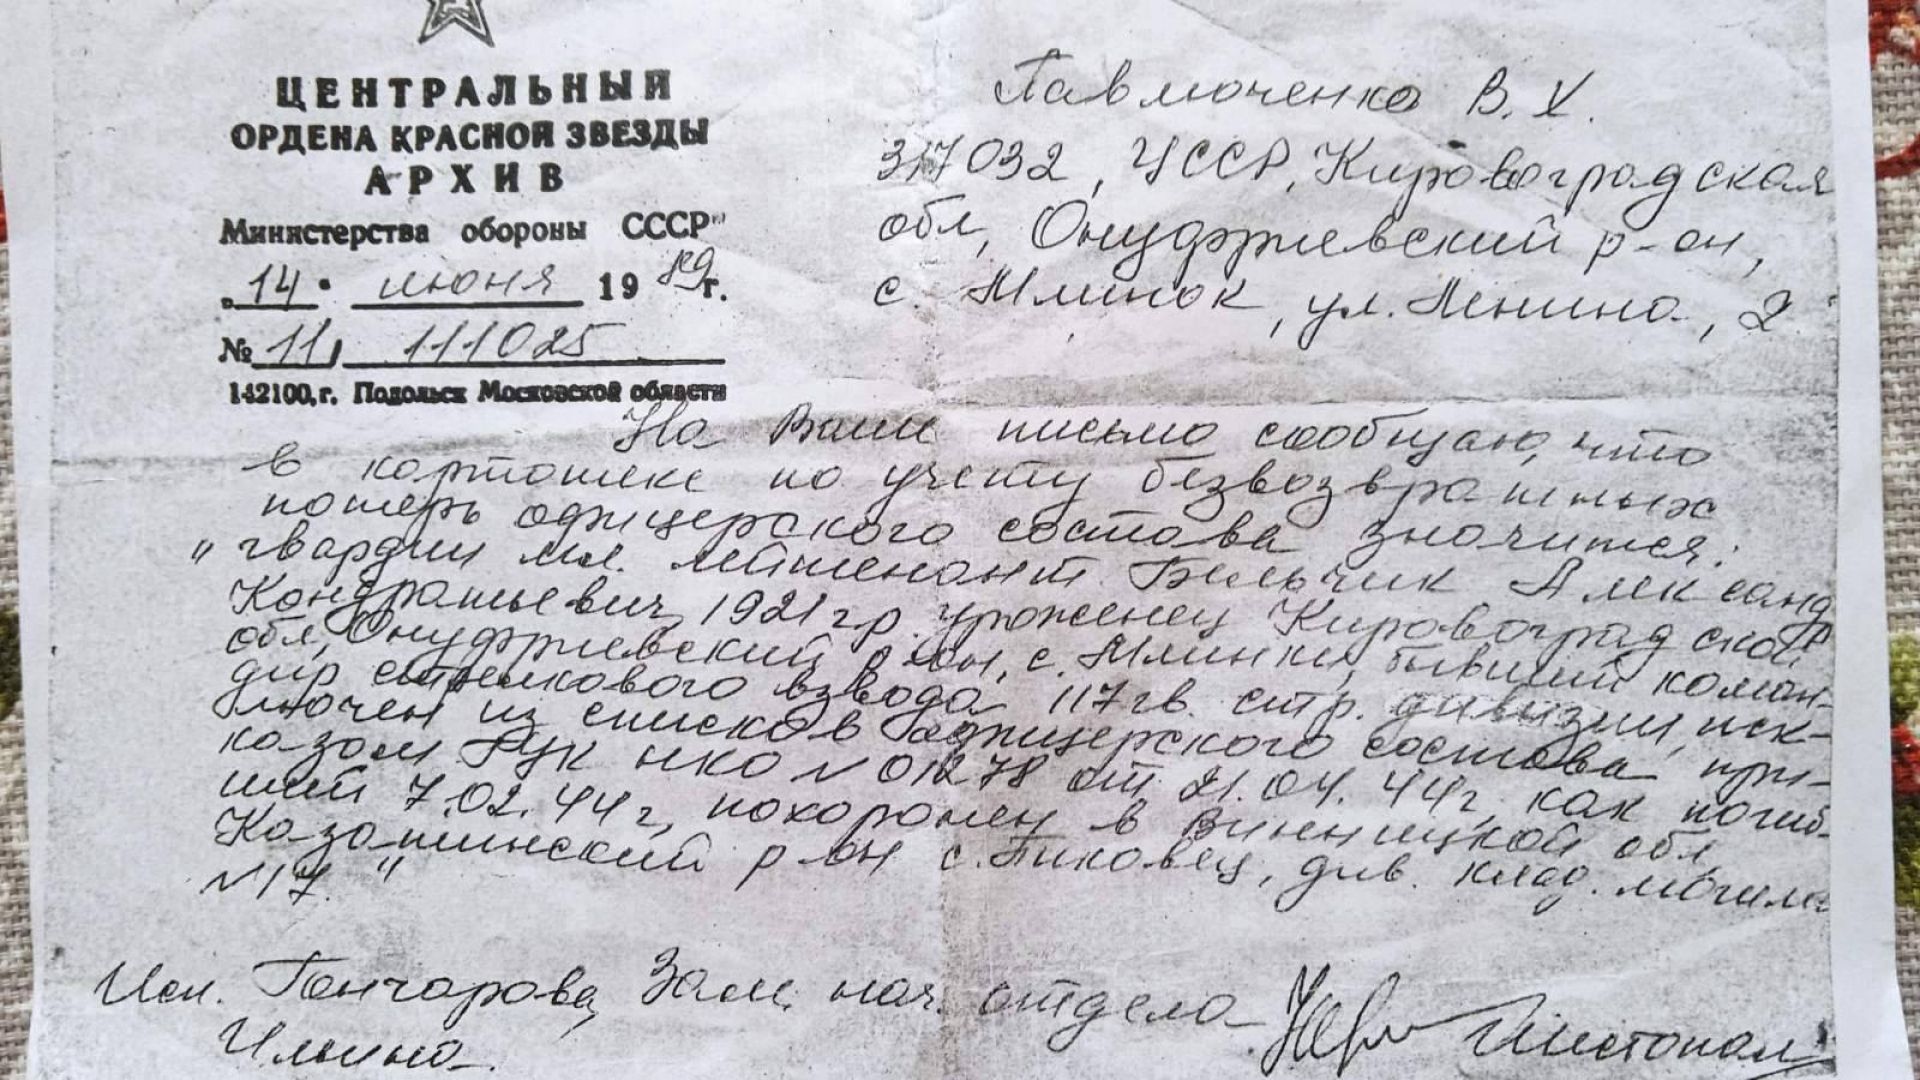 ЦЕНТРАЛЬНЫЙ
ОРДЕНА КРАСНОЙ ЗВЕЗДЫ
АРХИВ
Министерства обороны СССР
„14" июня 1989г.
№ 11/ 111025
142100, г. Подольск Московской области
Павлюченко В. Х.
317032, УССР, Кировоградская
обл, Онуфриевский р-он,
с. Млинок, ул. Ленина, 2
На Ваше письмо сообщаю, что
в картотеке по учету безвозвратных
потерь офицерского состава значится:
"гвардии мл. лейтенант Бельчик Александр
Кондратьевич, 1921 г.р. уроженец Кировоградской
обл, Онуфриевский р-он, с. Млинки, бывший коман-
дир стрелкового взвода 117 гв. стр. дивизии, иск-
лючен из списков офицерского состава при-
казом ГУК НКО № 01278 от 21.04.44г, как погиб-
ший 7.02.44г, похоронен в Винницкой обл,
Казатинский р-он с. Пиковец, див. клад. могила
№17."
Исп. Гончарова, Зам. нач. отдела
Ильина